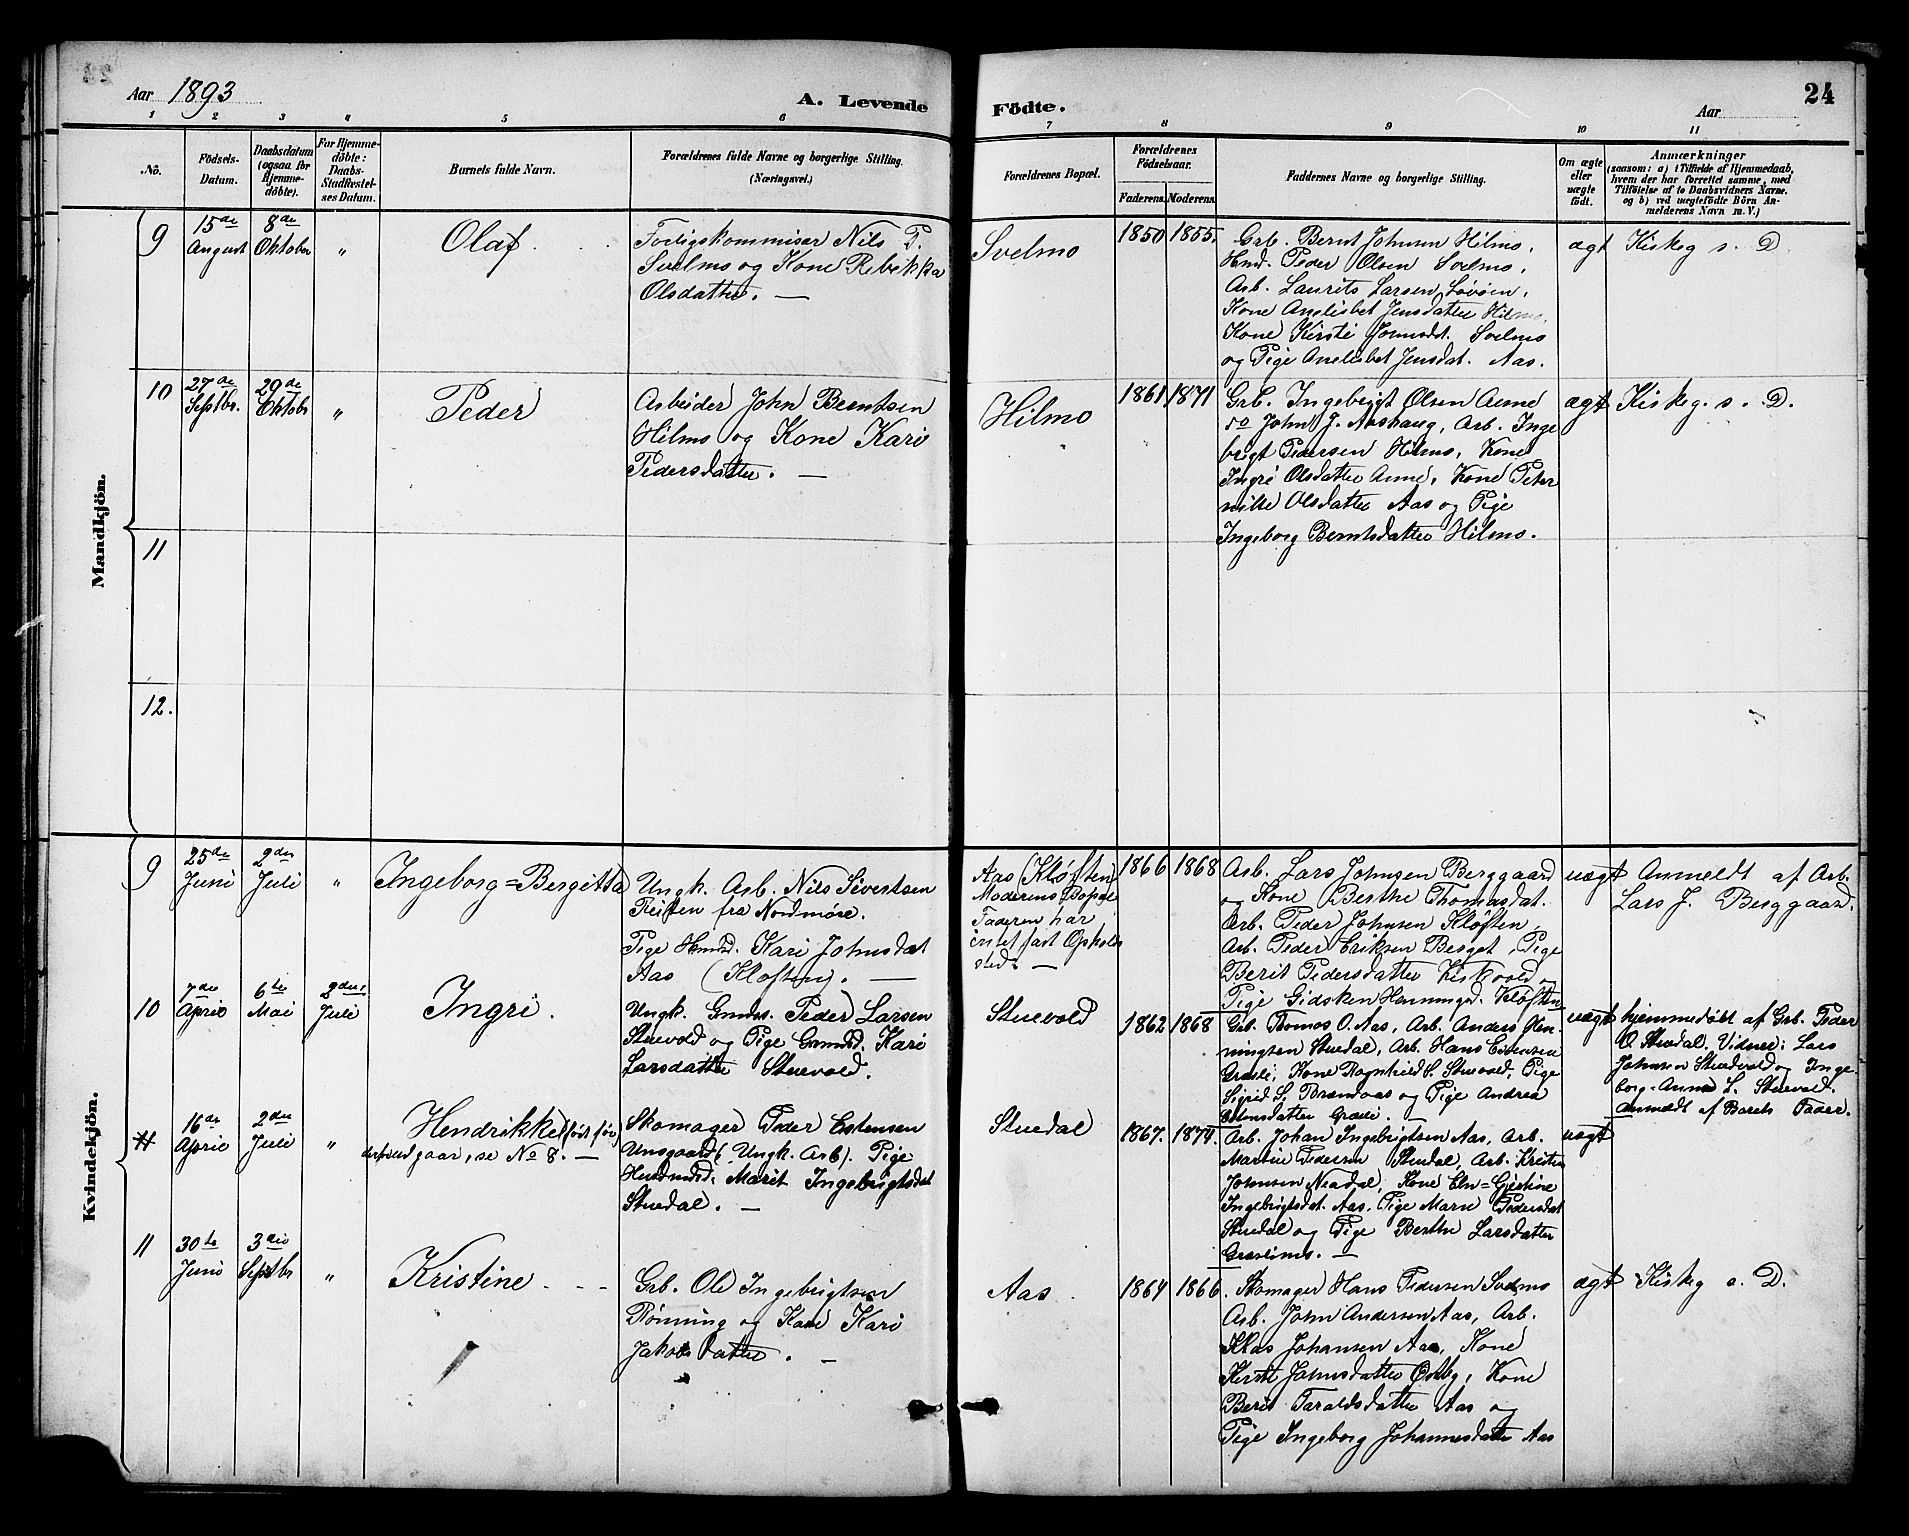 Aar 1893
A. Levende
Födte.
Aar
24
1 2 3 4 5 6 7 8 9 10 11
No.
Födsels-Datum.
Daabsdatum (ogsaa for Hjemmedöbte).
For Hjemmedöbte: Daabs-Stadfæstelses Datum.
Barnets fulde Navn.
Forældrenes fulde Navne og borgerlige Stilling. (Næringsvei.)
Forældrenes Bopæl.
Forældrenes Födselsaar.
Faderens. Moderens.
Faddernes Navne og borgerlige Stilling.
Om ægte eller uægte födt.
Anmærkninger
(saasom: a) i Tilfælde af Hjemmedaab, hvem der har forrettet samme, med Tilföielse af to Daabsvidners Navne. og b) ved uægtefödte Börn Anmelderens Navn m. V.)
Mandkjön.
9
15de August
8de Oktober
"
Olaf
Forligskommisær Nils P.
Svelmo og Kone Rebekka
Olsdatter. —
Svelmo
1850 1855.
Grb. Bernt Johnsen Hilmo,
Hmd. Peder Olsen Svelmo,
Arb. Laurits Larsen Løvøen,
Kone Anelisbet Jensdatter Hilmo.
Kone Kirsti Jonsdt. Svelmo
og Pige Anelisbet Jensdat. Aas.
ægt
Kiskeg s. D.
10
27de Septbr.
29de Oktobr
"
Peder
Arbeider John Berntsen
Hilmo og Kone Kari
Pedersdatter. —
Hilmo
1861 1871
Grb. Ingebrigt Olsen Aune
so John J. Aashaug, Arb. Inge
brigt Pedersen Hilmo, Kone
Ingri Olsdatter Aune, Kone Peter
nille Olsdatter Aas og Pige
Ingeborg Berntsdatter Hilmo.
ægt
Kiskeg. s. D.
11
12.
Kvindekjön.
9
25de Juni
2den Juli
"
Ingeborg=Bergitta
Ungk. Arb. Nils Sivertsen
Reiten fra Nordmøre.
Pige Hmd. Kari Johnsdat
Aas (Kløften). —
Aas (Kløften)
Moderens Bopæl
Faderen har
intet fast Opholds
sted. —
1866 1868
Arb. Lars Johnsen Berggaard
og Kone Berthe Thomasdat.
Arb. Peder Johnsen Kløften,
Arb. Peder Eriksen Berget, Pige
Berit Pedersdatter Kiskvold og
Pige Gidsken Henningsd. Kløften
uægt
Anmeldt af Arb.
Lars J. Berggaard.
10
7de April
6te Mai
2den Juli
Ingri.
Ungk. Gmds. Peder Larsen
Stuevold og Pige Grmd. Kari
Larsdatter Stuevold.
Stuevold
1862 1868
Grb. Thomas O. Aas, Arb. Anders Hen-
ningsen Stuedal, Arb. Hans Estensen
Græsli, Kone Ragnhild S. Stuevold, Pige
Sigrid L. Brændaas og Pige Andrea
Estensdatter Græsli.
uægt
hjemmedøbt af Grb. Peder
O. Stuedal. Vidner: Lars
Johnsen Stuedvold og Inge
borg-Anna L. Stuevold.
Anmeldt af Barets Fader.
11
16de April
2den Juli
"
Hendrikke (født før
indgaar, se No 8. —
Skomager Peder Estensen
Unsgaard (Ungk. Arb). Pige
Marit Ingebrigtsdat
Stuedal. —
Stuedal
1867. 1874.
Arb. Johan Ingebrigtsen Aas, Arb.
Martin Pedersen Stuedal, Arb. Kristen
Johnsen Neadal, Kone Eln=Gjertine
Ingebrigtsdat. Aas. Pige Marie Pedersdat
Stuedal og Pige Berthe Larsdatter
Græslimo. —
uægt
11
30te Juni
3die Septbr
"
Kristine - - -
Grb. Ole Ingebrigtsen
Rønning og Kone Kari
Jakobsdatter. —
Aas.
1864 1866
Skomager Hans Pedersen Svelmo
Arb. John Andersen Aas, Arb.
Klas Johansen Aas, Kone
Kirsti Johnsdatter Østby, Kone
Berit Taraldsdatter Aas og
Pige Ingeborg Johannesdatter Aas
ægt
Kiskeg s. D.